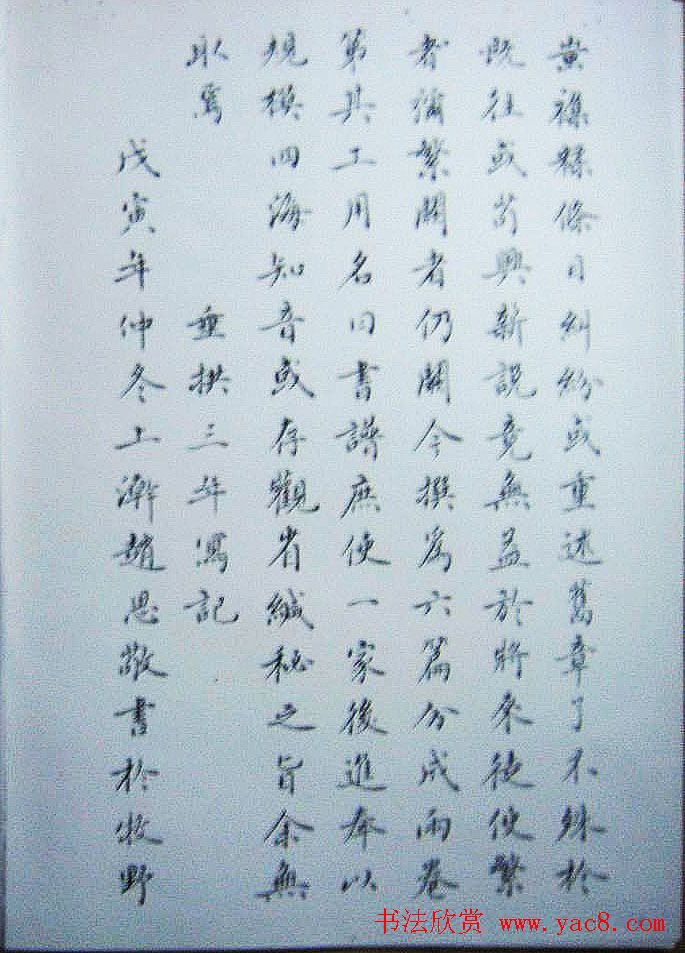 黄襍綵條目糾紛或重述舊章了不殊於
既往或苟興新説竟無益於將來徒使繁
者彌繁闕者仍闕今撰為六篇分成兩卷
第其工用名曰書譜庶使一家後進奉以
規模四海知音或存觀省緘秘之旨余無
取焉
垂拱三年寫記
戊寅年仲冬上澣趙思敬書於牧野
书法欣赏 www.yac8.com